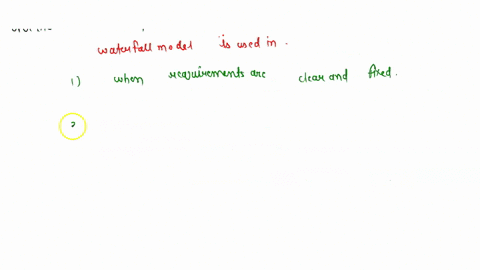 waterfall model is used in.
1) when requirements are clear and fixed.
2